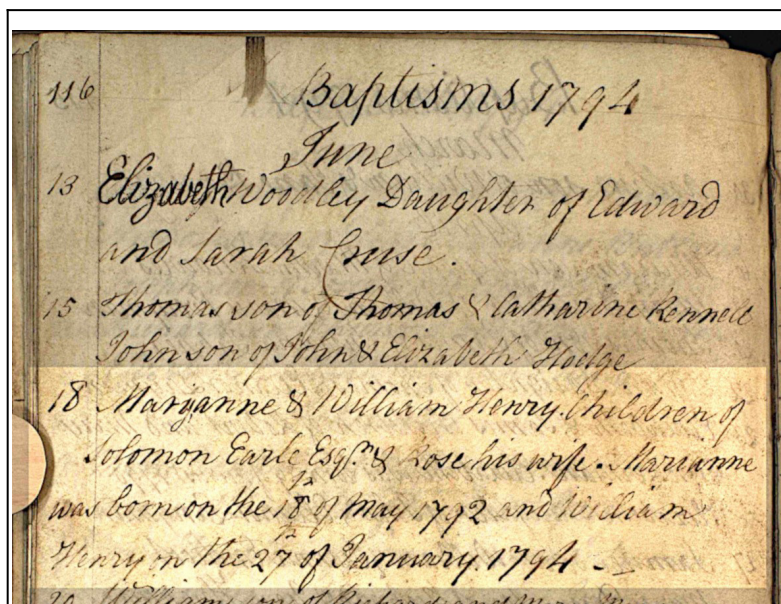 116 Baptisms 1794
June
13 Elizabeth Woodley Daughter of Edward
and Sarah Cruse.
15 Thomas son of Thomas & Catharine Kennell
John son of John & Elizabeth Hodge
18 Maryanne & William Henry Children of
Solomon Earle Esqr. & Rose his wife. Marianne
was born on the 18th of May 1792 and William
Henry on the 27th of January 1794
William son of Richard and